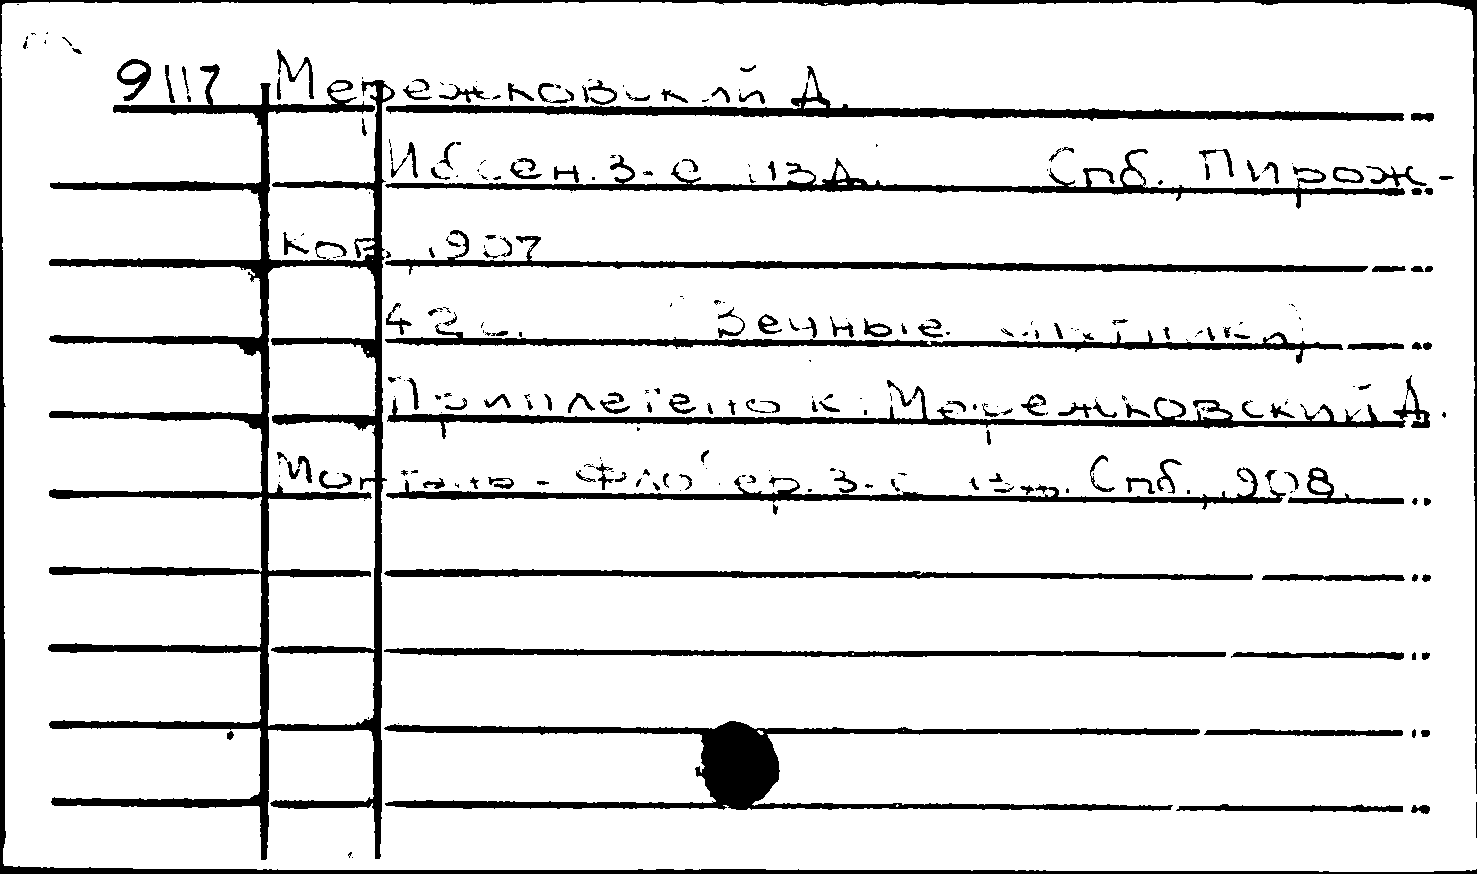 9117 Мережковский Д.
Ибсен. 3-е изд. Спб., Пирож-
ков, 1907
42 с. (Вечные спутники)
Приплетено к: Мережковский Д.
Монтань - Флобер. 3-е изд. Спб., 1908.